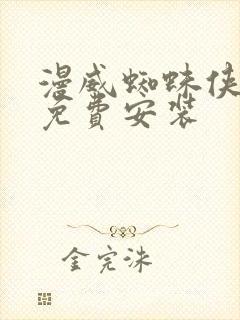 漫威蜘蛛侠
免费安装
金完洙